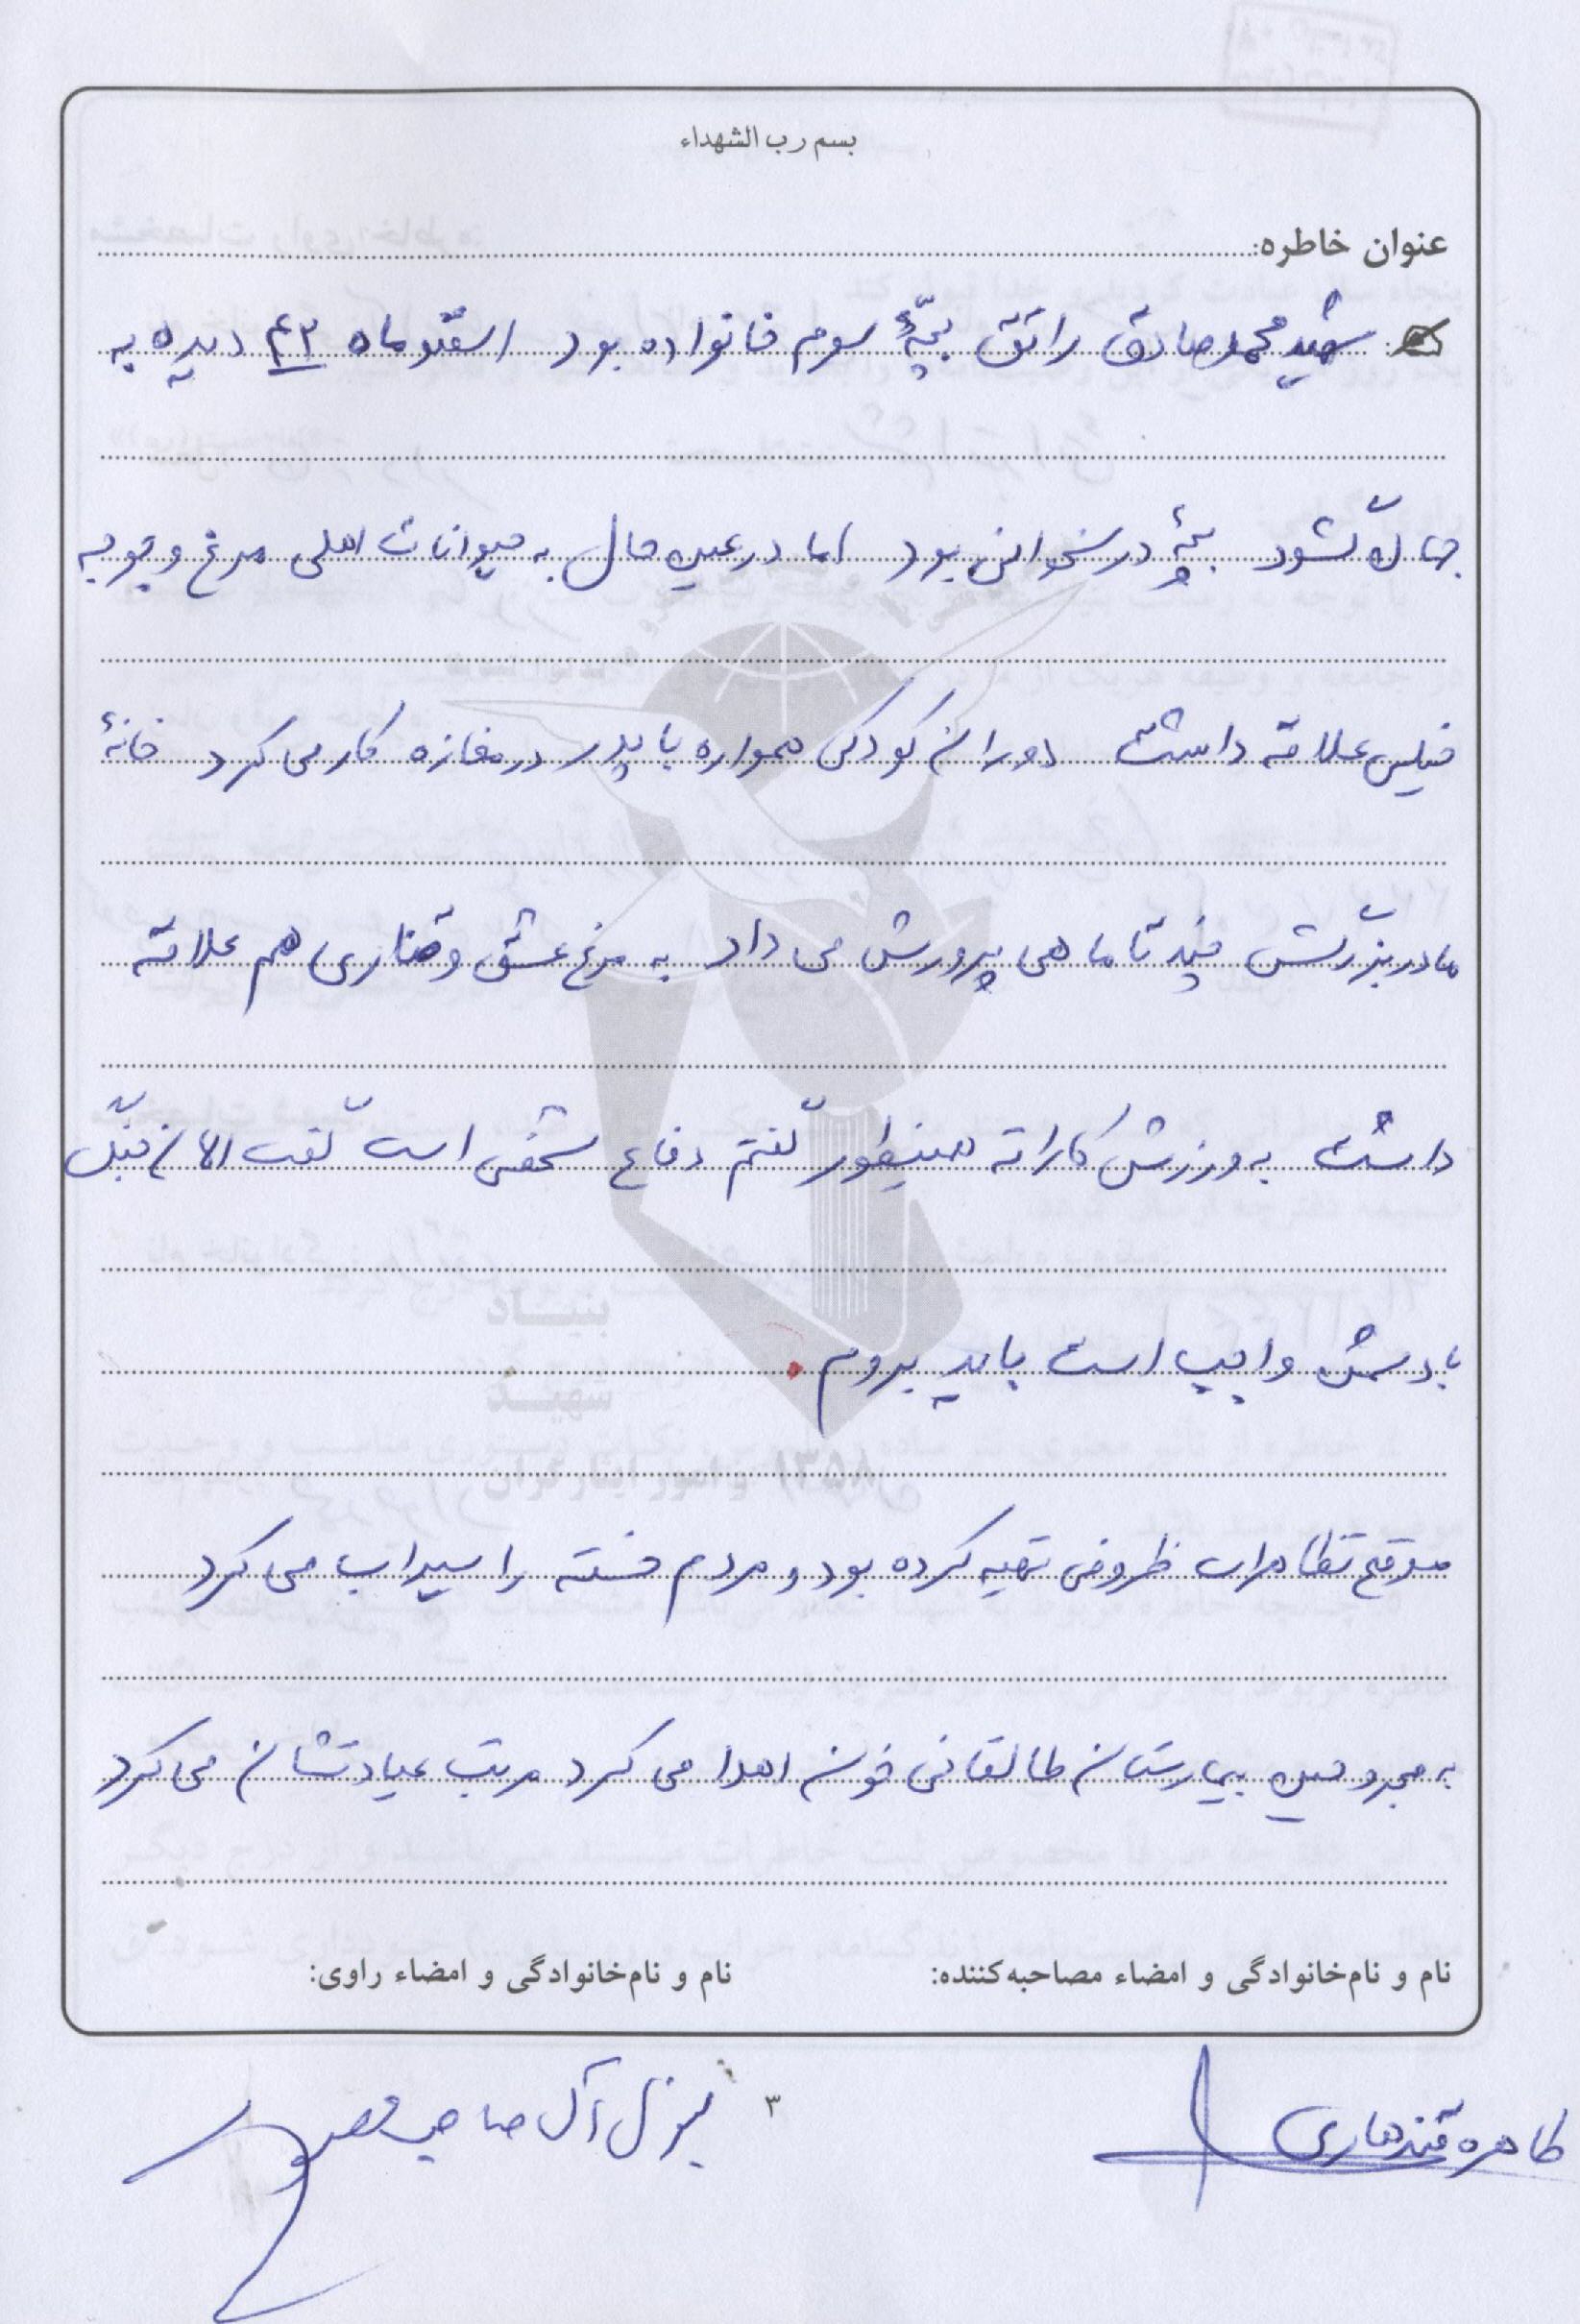 بسم رب الشهداء
عنوان خاطره:
شهید محمد صادق رائق بچّهٔ سوم خانواده بود اسفندماه ۴۲ دیده به
جهان گشود بچهٔ درسخوانی بود اما در عین حال به حیوانات اهلی مرغ و جوجه
خیلی علاقه داشت دوران کودکی همواره با پدر در مغازه کار می کرد خانهٔ
مادربزرگش چند تا ماهی پرورش می داد به مرغ عشق و قناری هم علاقه
داشت به ورزش کاراته همینطور گفتم دفاع شخصی است گفت الان جنگ
با دشمن واجب است باید بروم.
موقع تظاهرات ظروفی تهیه کرده بود و مردم خسته را سیراب می کرد
به مجروحین بیمارستان طالقانی خون اهدا می کرد مرتب عیادتشان می کرد
نام و نام‌خانوادگی و امضاء مصاحبه‌کننده:
نام و نام‌خانوادگی و امضاء راوی:
طاهره قندهاری
آل صاحب فصول
۳
بنیاد
شهید
و امور ایثارگران
۱۳۵۸